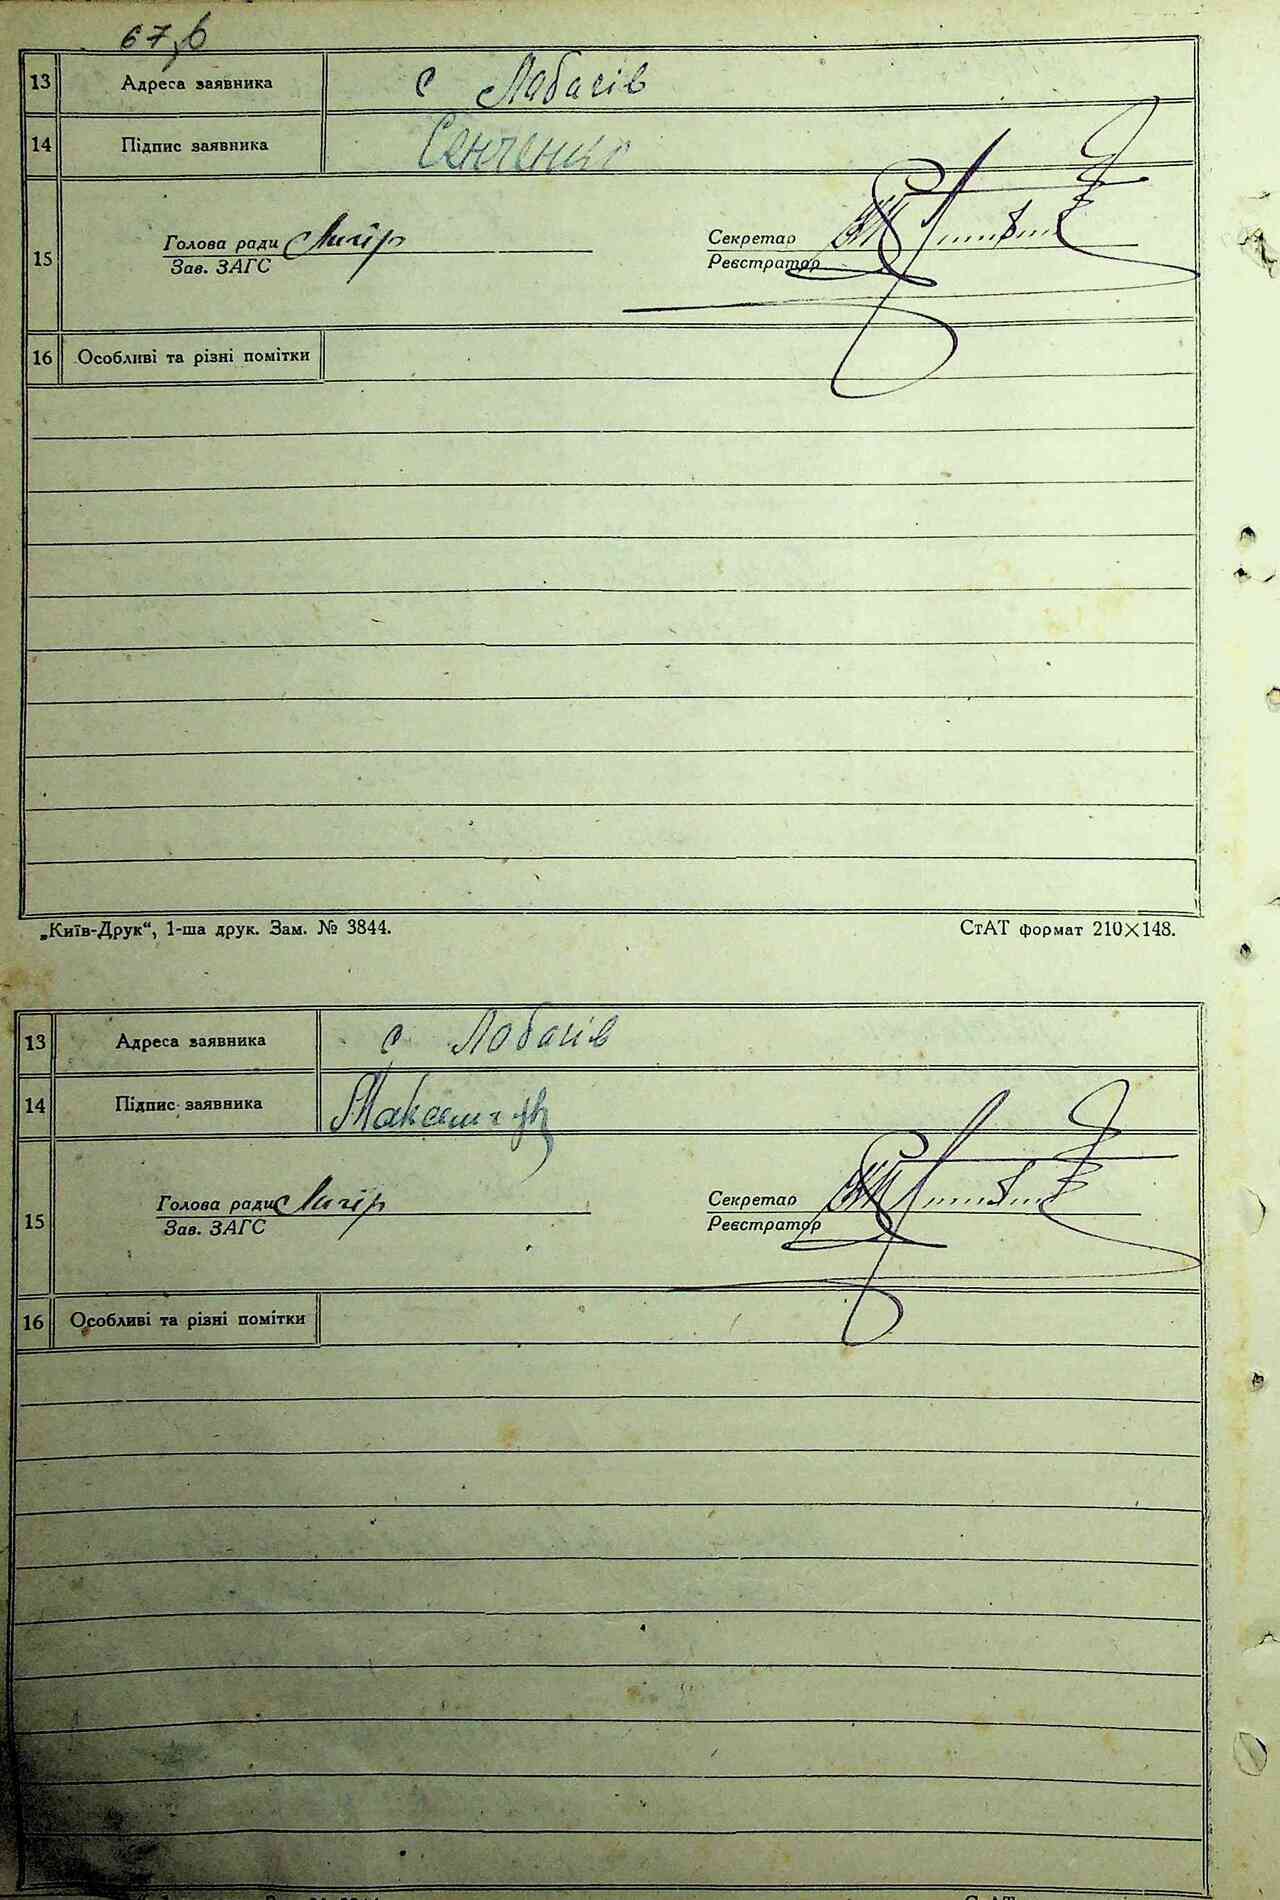 67 б
13 Адреса заявника с Лобачів
14 Підпис заявника Сенченко
Голова ради Секретар
15
Зав. ЗАГС Реєстратор
16 Особливі та різні помітки
„Київ-Друк“, 1-ша друк. Зам. № 3844. СтАТ формат 210×148.
13 Адреса заявника с Лобачів
14 Підпис заявника
Голова ради Секретар
15
Зав. ЗАГС Реєстратор
16 Особливі та різні помітки